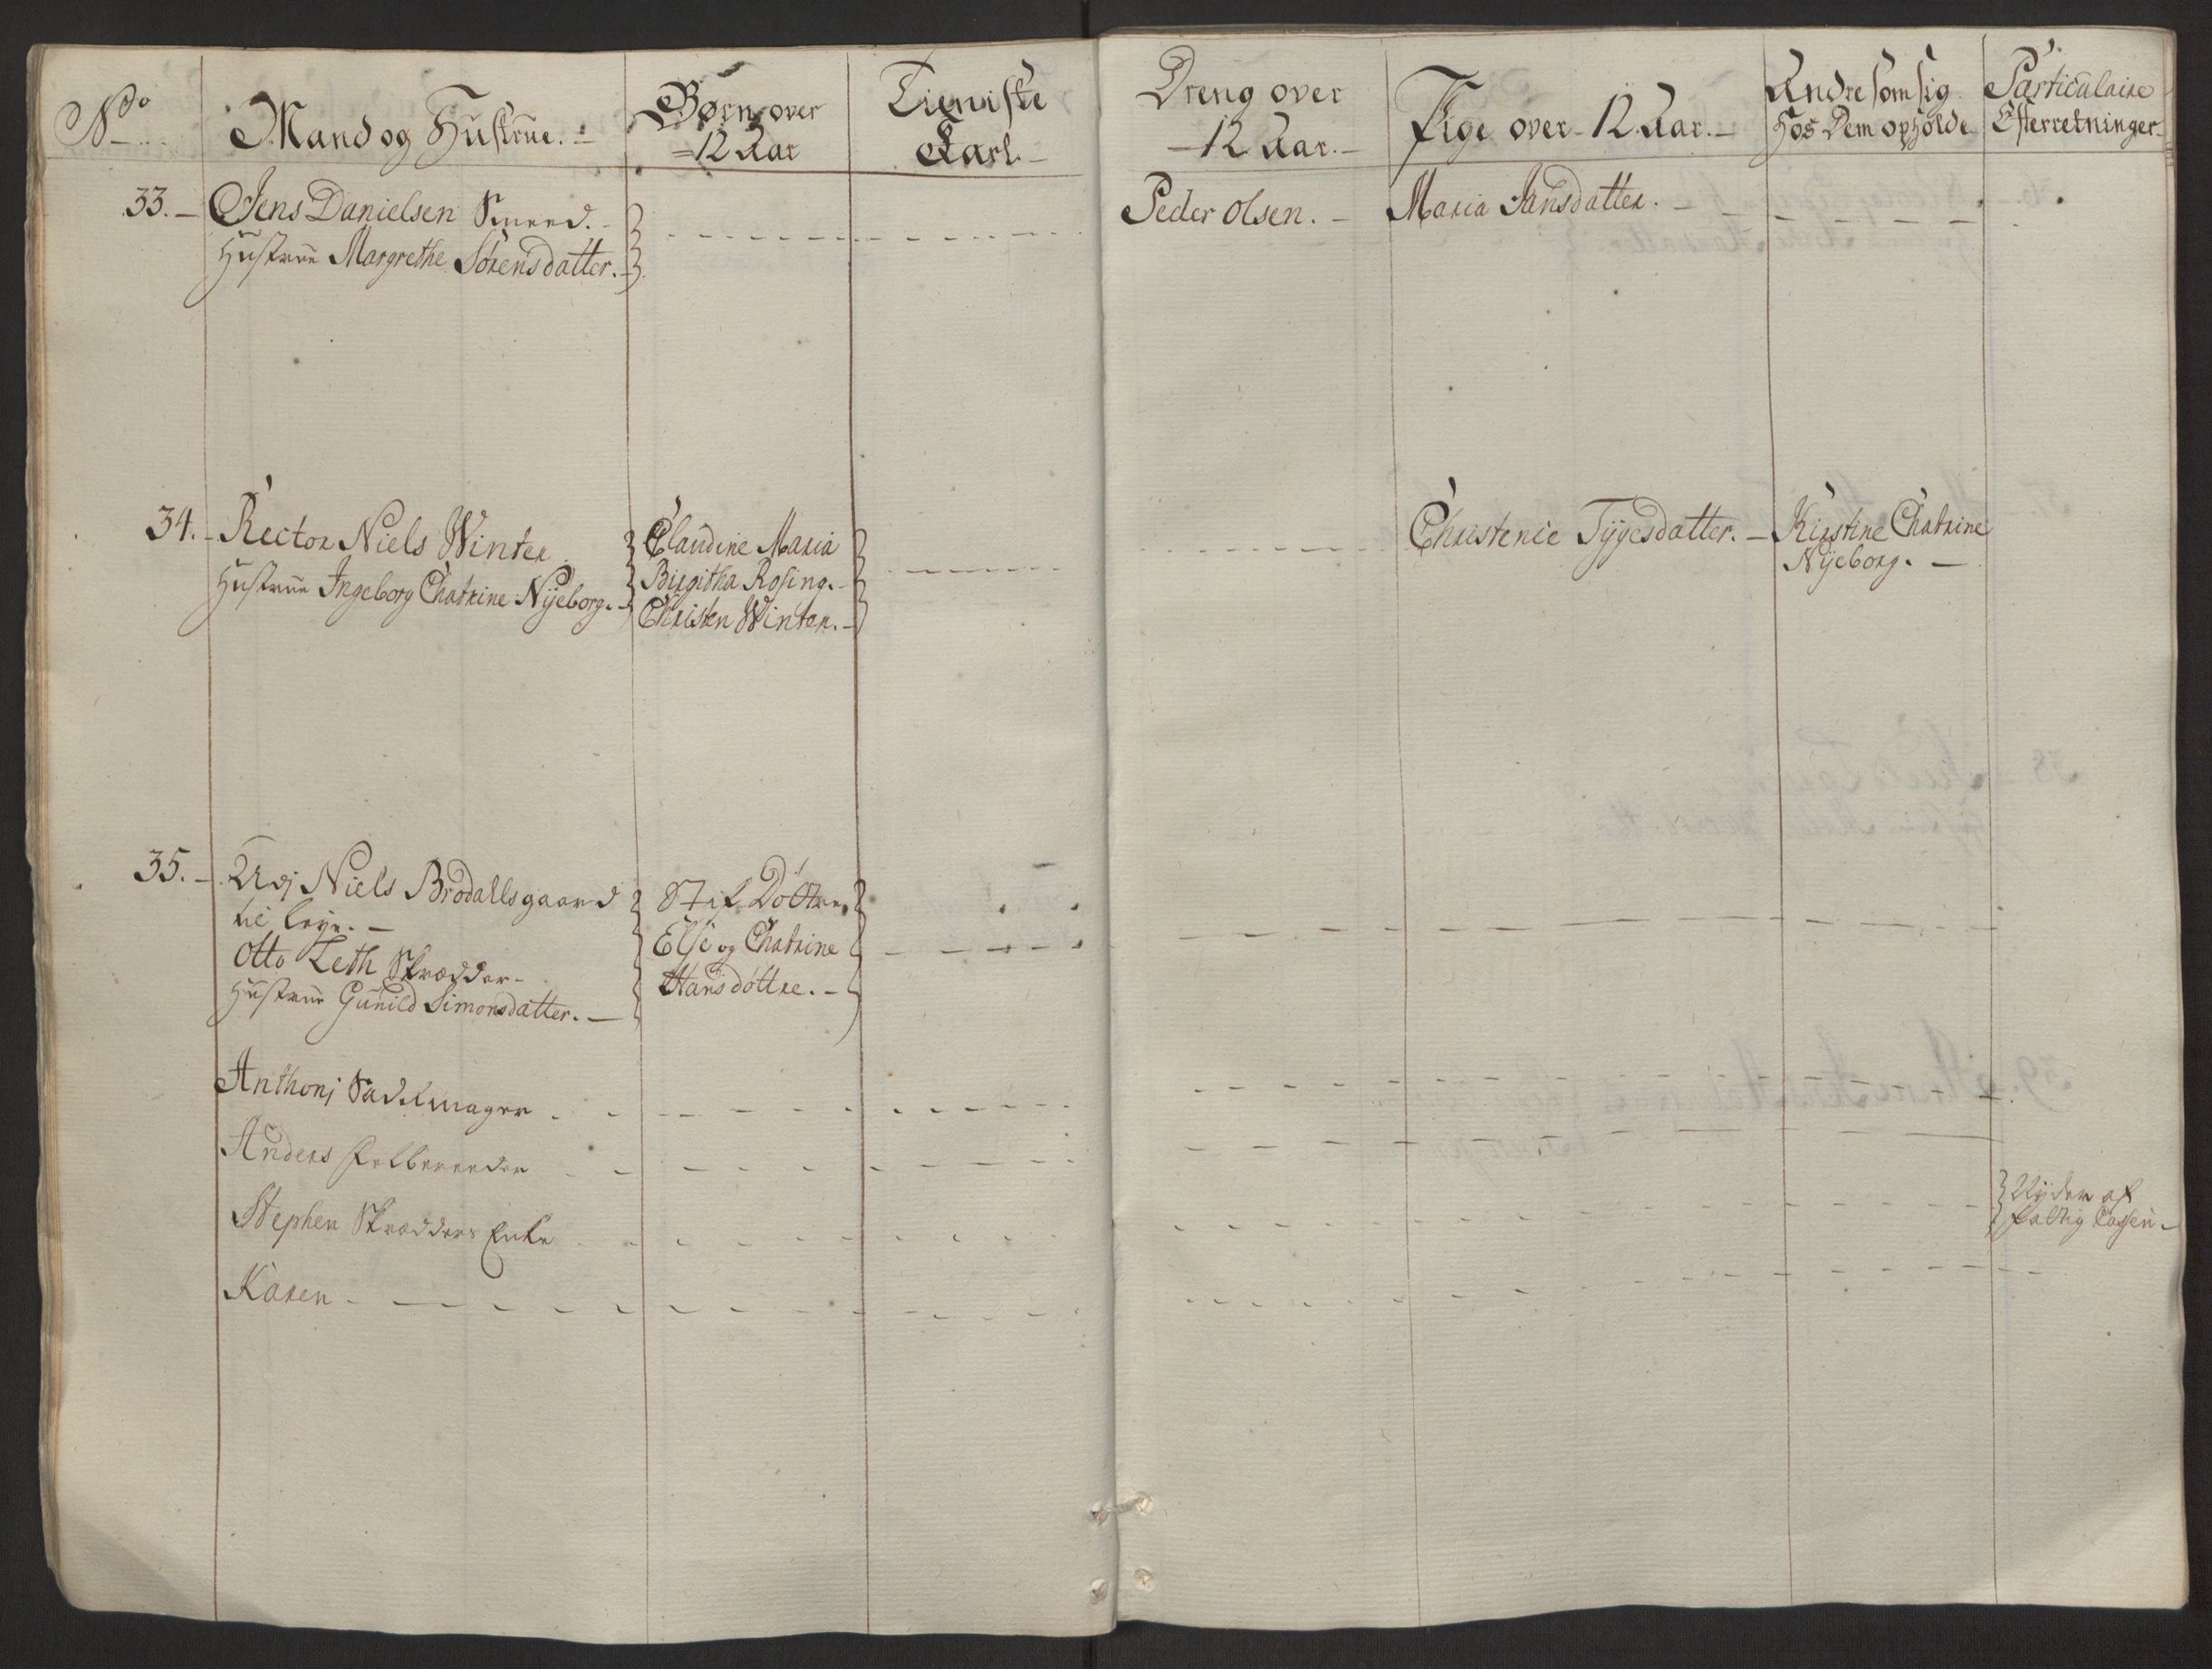 No
Mand og Hustrue.
Børn over
12 Aar
Tieniste
Karl.
Dreng over
12 Aar.
Pige over 12 Aar.
Andre som sig
hos Dem opholde
Particulaire
Efterretninger
33. Jens Danielsen Smeed.
Hustrue Margrethe Sørensdatter.
Peder Olsen.
Maria Jansdatter.
34. Rector Niels Winter
Hustrue Ingeborg Chatrine Nÿeborg.
Claudine Maria
Birgitha Rosing.
Christen Winter.
Christence Tÿgesdatter.
Kirstine Chatrine
Nÿeborg.
35. Niels Brodallsgaard
til leye.
Otto Leth Skrædder
Hustrue Gunild Simonsdatter.
Stif Døttre
Else og Chatrine
Hansdøttre.
Anthonj Sadelmager
Anders Felbereeder
Stephen Skrædders Enke
Nyder af
Fattig Cassen
Karen